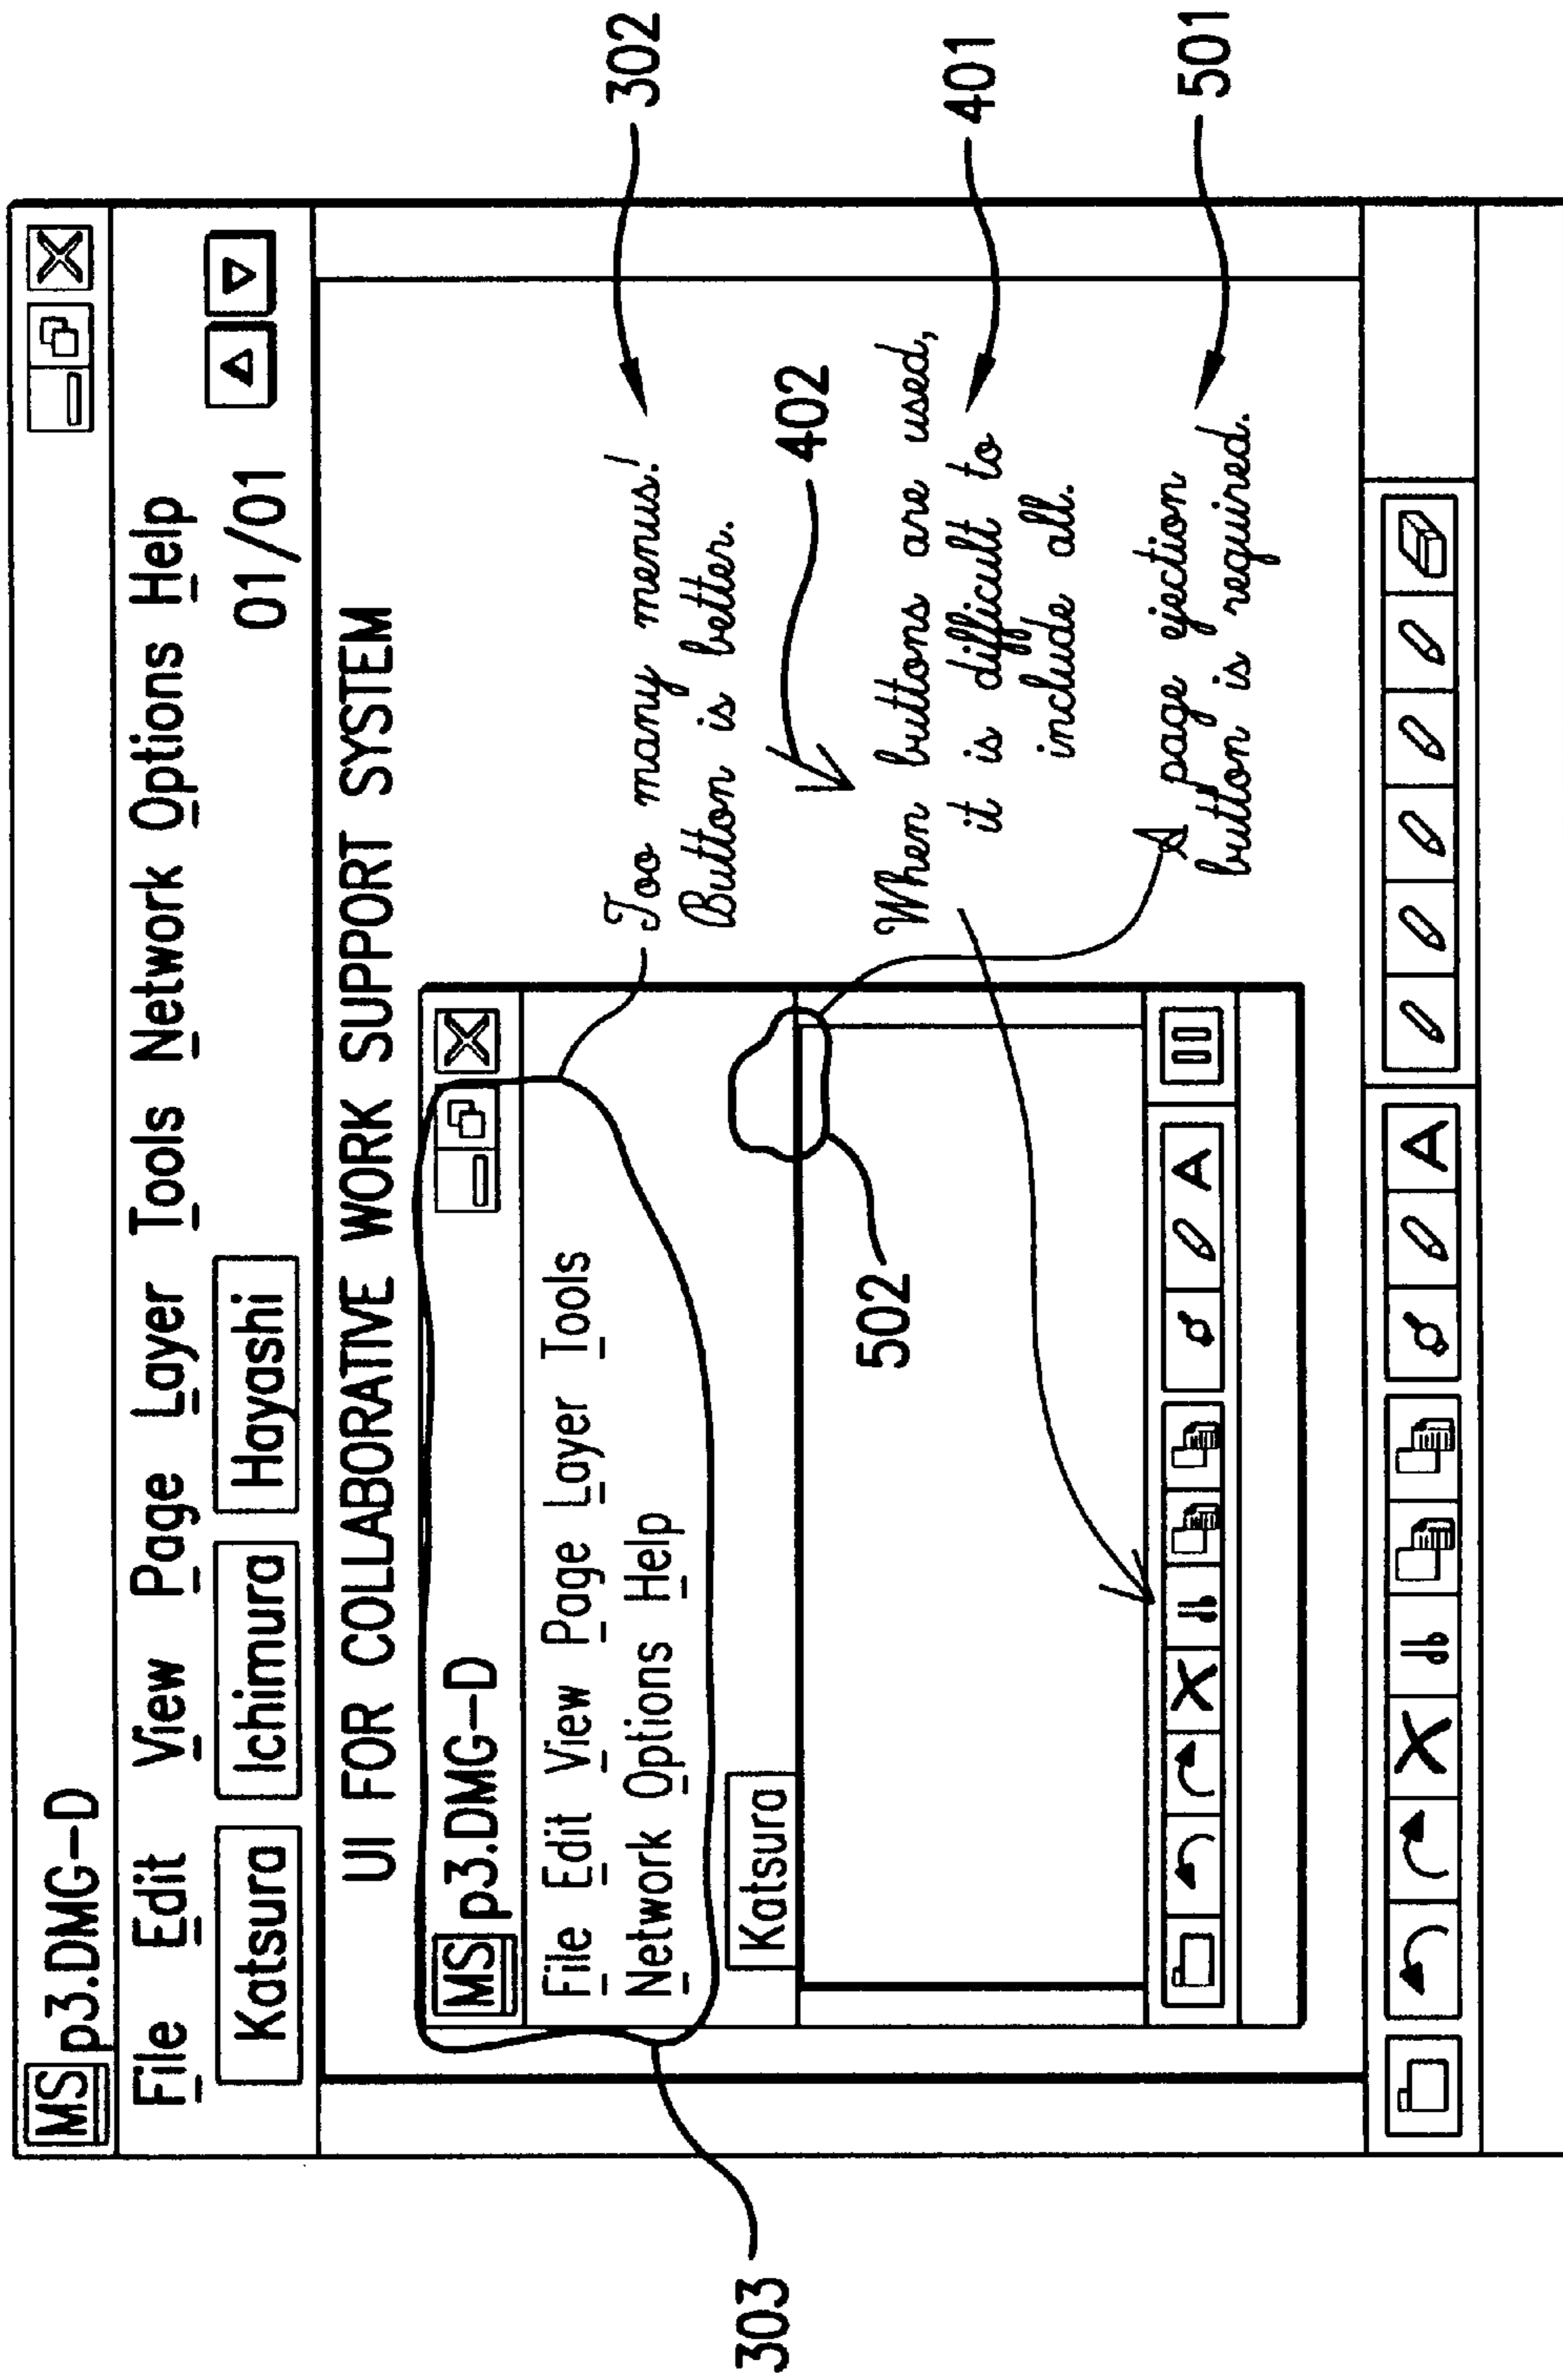 MS p3.DMG-D
File Edit View Page Layer Tools Network Options Help
Katsura Ichimura Hayashi 01/01
UI FOR COLLABORATIVE WORK SUPPORT SYSTEM
MS p3.DMG-D
File Edit View Page Layer Tools
Network Options Help
Katsura
Too many menus!
Button is better.
When buttons are used,
it is difficult to
include all.
A page ejection
button is required.
A
A
302
402
401
501
502
303